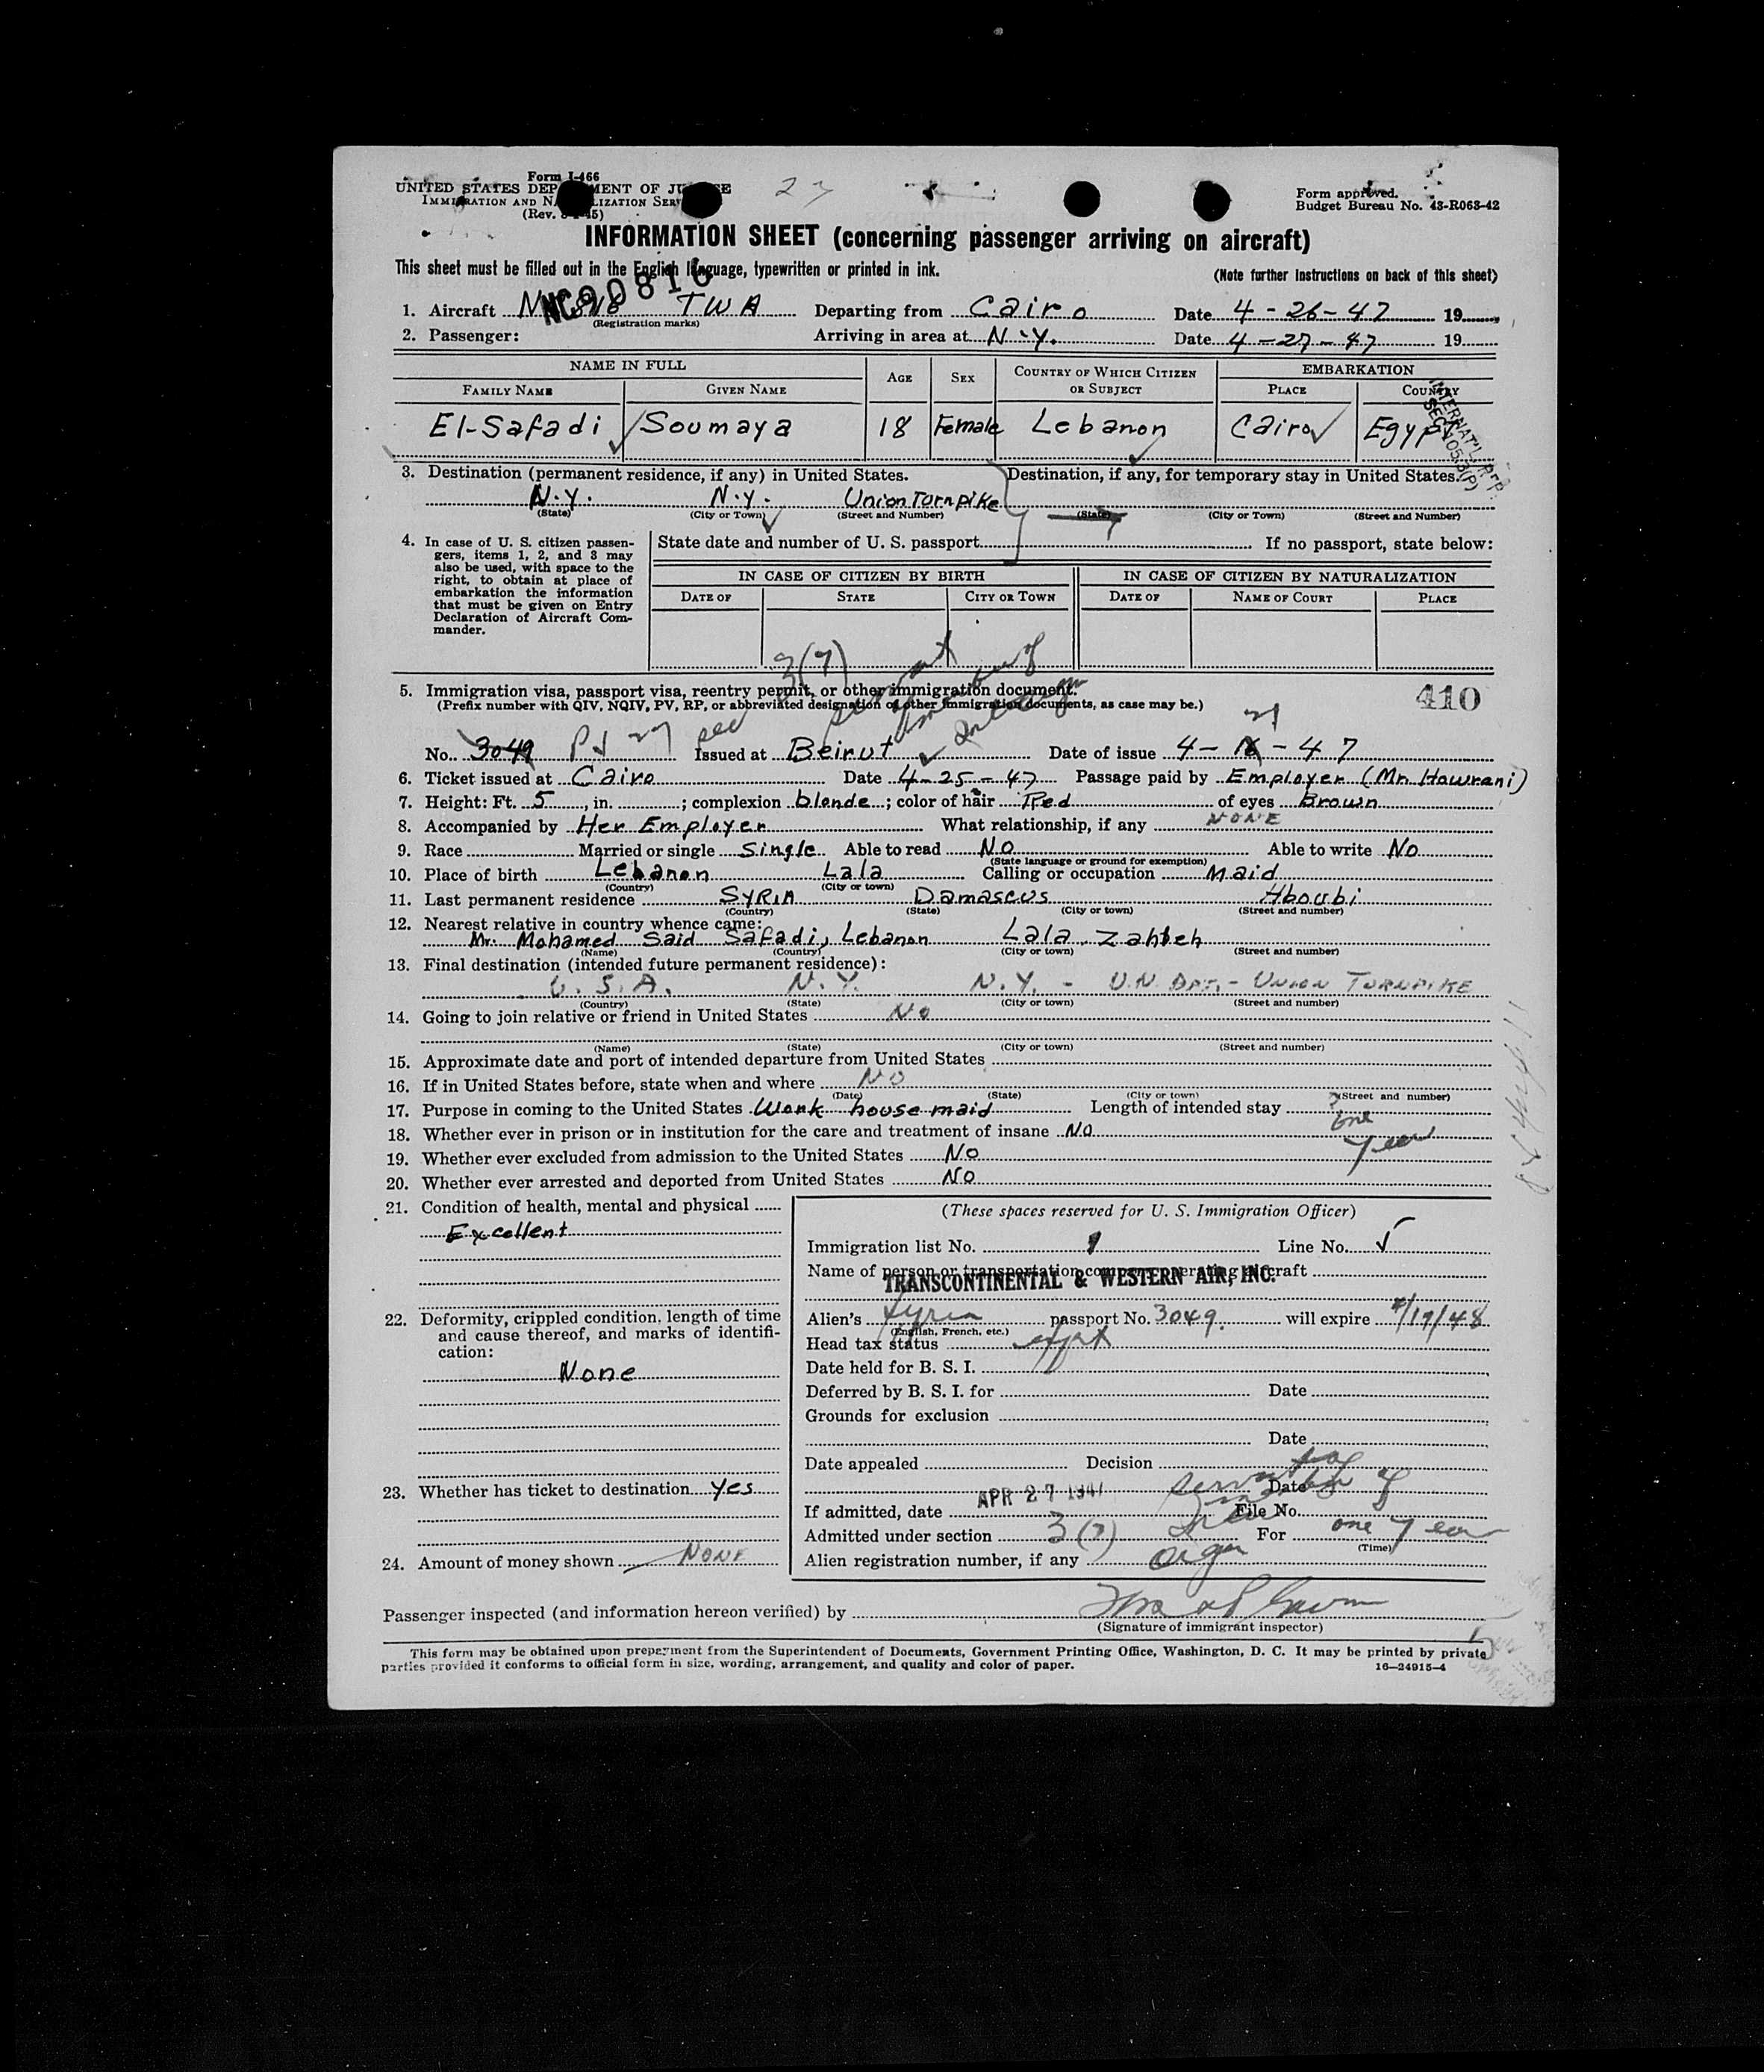 Form I-466
UNITED STATES DEPARTMENT OF JUSTICE
IMMIGRATION AND NATURALIZATION SERVICE
(Rev. 45)
27
Form approved.
Budget Bureau No. 43-R063-42
INFORMATION SHEET (concerning passenger arriving on aircraft)
This sheet must be filled out in the English language, typewritten or printed in ink.
(Note further instructions on back of this sheet)
NC90816
1. Aircraft TWA Departing from Cairo Date 4-26-47 19
(Registration marks)
2. Passenger: Arriving in area at N.Y. Date 4-27-47 19
NAME IN FULL AGE SEX COUNTRY OF WHICH CITIZEN OR SUBJECT EMBARKATION
FAMILY NAME GIVEN NAME PLACE COUNTRY
El-Safadi Soumaya 18 Female Lebanon Cairo Egypt
3. Destination (permanent residence, if any) in United States. Destination, if any, for temporary stay in United States.
N.Y. N.Y. Union Tornpike
(State) (City or Town) (Street and Number) (State) (City or Town) (Street and Number)
4. In case of U. S. citizen passengers, items 1, 2, and 3 may also be used, with space to the right, to obtain at place of embarkation the information that must be given on Entry Declaration of Aircraft Commander.
State date and number of U. S. passport If no passport, state below:
IN CASE OF CITIZEN BY BIRTH IN CASE OF CITIZEN BY NATURALIZATION
DATE OF STATE CITY OR TOWN DATE OF NAME OF COURT PLACE
3(7)
5. Immigration visa, passport visa, reentry permit, or other immigration document.
(Prefix number with QIV, NQIV, PV, RP, or abbreviated designation of other immigration documents, as case may be.)
410
No. 3049 Issued at Beirut Date of issue 4- 21 -47
6. Ticket issued at Cairo Date 4-25-47 Passage paid by Employer (Mr. Hawrani)
7. Height: Ft. 5, in. ; complexion blonde; color of hair Red of eyes Brown
8. Accompanied by Her Employer What relationship, if any NONE
9. Race Married or single Single Able to read No Able to write No
(State language or ground for exemption)
10. Place of birth Lebanon Lala Calling or occupation Maid
(Country) (City or town)
11. Last permanent residence SYRIA Damascus Hboubi
(Country) (State) (City or town) (Street and number)
12. Nearest relative in country whence came:
Mr. Mohamed Said Safadi, Lebanon Lala Zahleh
(Name) (Country) (City or town) (Street and number)
13. Final destination (intended future permanent residence):
U.S.A. N.Y. N.Y. - U.N. - UNION TURNPIKE
(Country) (State) (City or town) (Street and number)
14. Going to join relative or friend in United States No
(Name) (State) (City or town) (Street and number)
15. Approximate date and port of intended departure from United States
16. If in United States before, state when and where No
(Date) (State) (City or town) (Street and number)
17. Purpose in coming to the United States Work house maid Length of intended stay one year
18. Whether ever in prison or in institution for the care and treatment of insane NO
19. Whether ever excluded from admission to the United States No
20. Whether ever arrested and deported from United States No
21. Condition of health, mental and physical
Excellent
22. Deformity, crippled condition, length of time and cause thereof, and marks of identification:
None
23. Whether has ticket to destination yes
24. Amount of money shown NONE
(These spaces reserved for U. S. Immigration Officer)
Immigration list No. 1 Line No.
Name of person or transportation company operating aircraft
TRANSCONTINENTAL & WESTERN AIR, INC.
Alien's Syrian passport No. 3049 will expire 4/19/48
(English, French, etc.)
Head tax status
Date held for B. S. I.
Deferred by B. S. I. for Date
Grounds for exclusion
Date
Date appealed Decision
Date
If admitted, date APR 27 1947 File No.
Admitted under section 3(7) For one year
(Time)
Alien registration number, if any
Passenger inspected (and information hereon verified) by
(Signature of immigrant inspector)
This form may be obtained upon prepayment from the Superintendent of Documents, Government Printing Office, Washington, D. C. It may be printed by private
parties provided it conforms to official form in size, wording, arrangement, and quality and color of paper.
16—24915-4